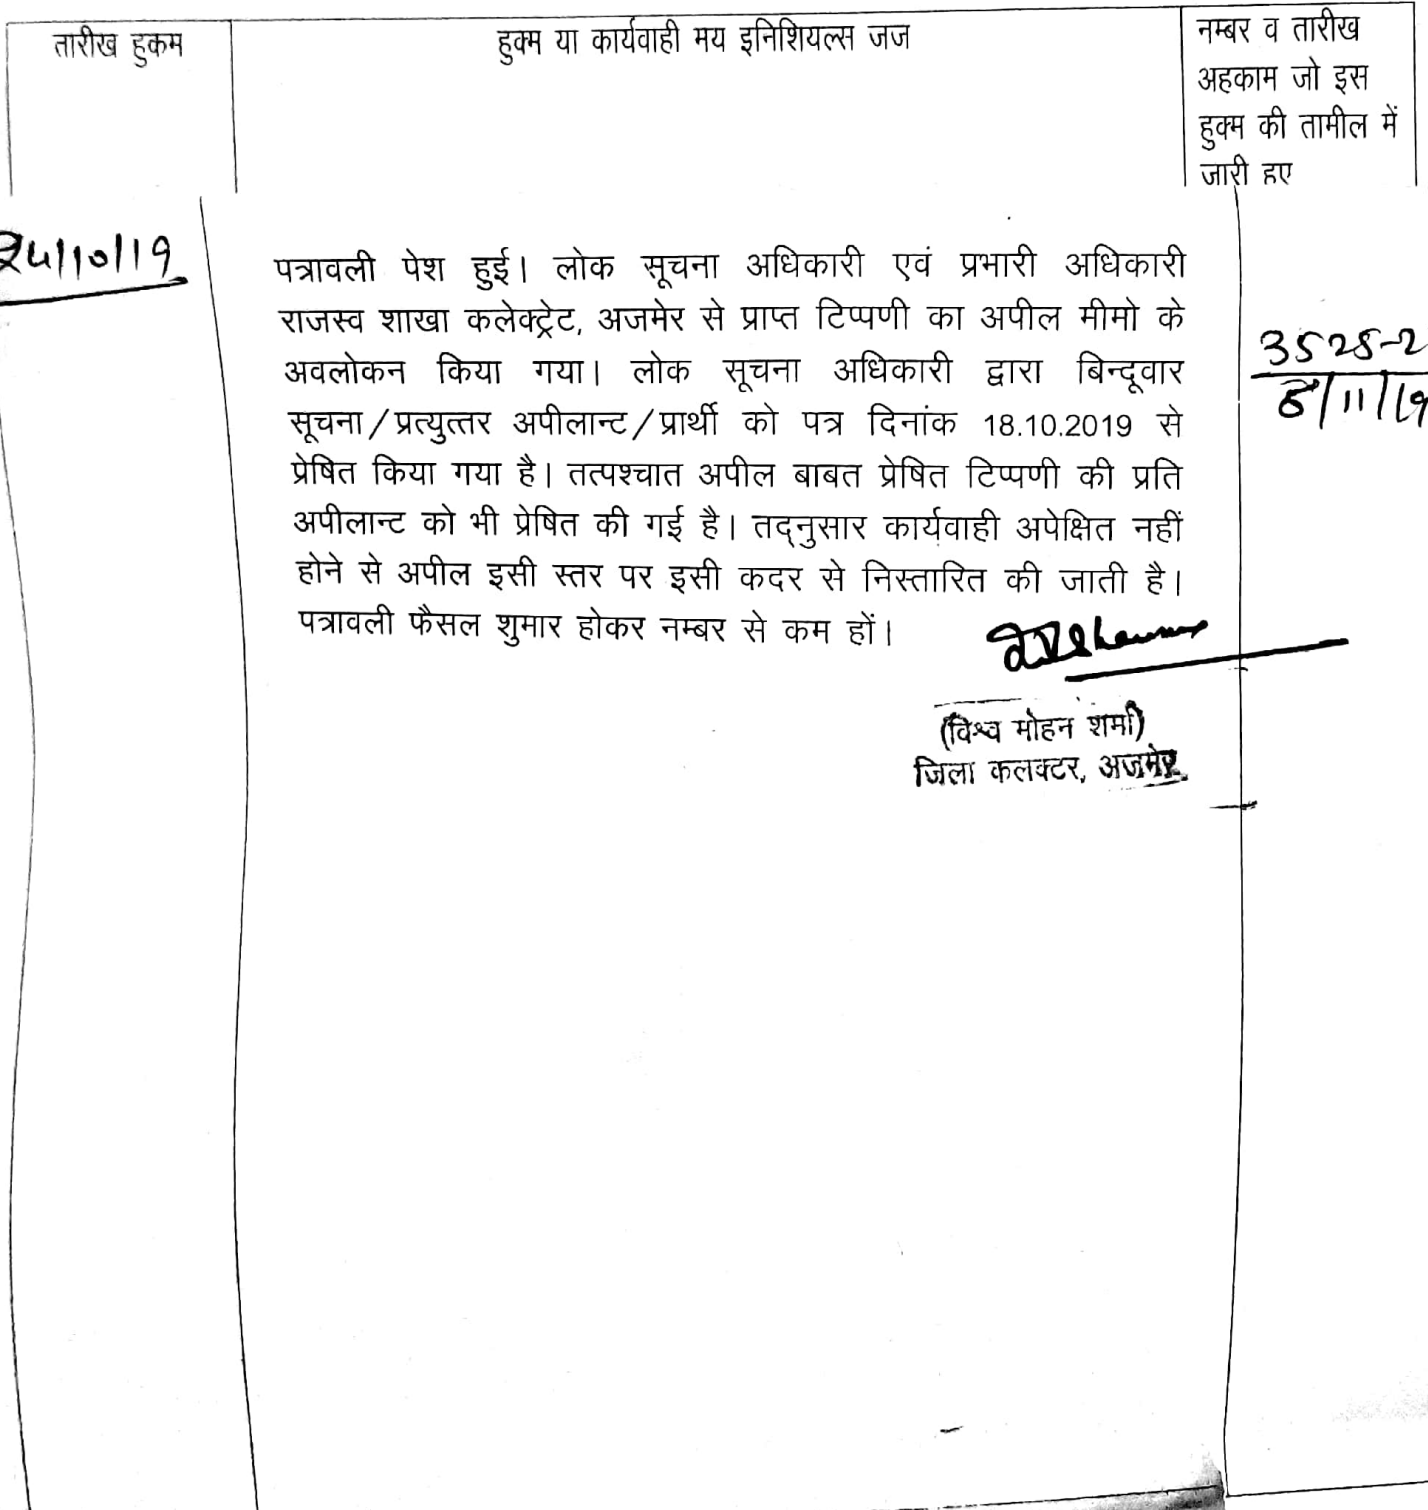 तारीख हुकम
हुक्म या कार्यवाही मय इनिशियल्स जज
नम्बर व तारीख
अहकाम जो इस
हुक्म की तामील में
जारी हुए
/10/19
पत्रावली पेश हुई। लोक सूचना अधिकारी एवं प्रभारी अधिकारी
राजस्व शाखा कलेक्ट्रेट, अजमेर से प्राप्त टिप्पणी का अपील मीमो के
अवलोकन किया गया। लोक सूचना अधिकारी द्वारा बिन्दूवार
सूचना/प्रत्युत्तर अपीलान्ट/प्रार्थी को पत्र दिनांक 18.10.2019 से
प्रेषित किया गया है। तत्पश्चात अपील बाबत प्रेषित टिप्पणी की प्रति
अपीलान्ट को भी प्रेषित की गई है। तद्नुसार कार्यवाही अपेक्षित नहीं
होने से अपील इसी स्तर पर इसी कदर से निस्तारित की जाती है।
पत्रावली फैसल शुमार होकर नम्बर से कम हों।
3525-2
8/11/19
(विश्व मोहन शर्मा)
जिला कलक्टर, अजमेर